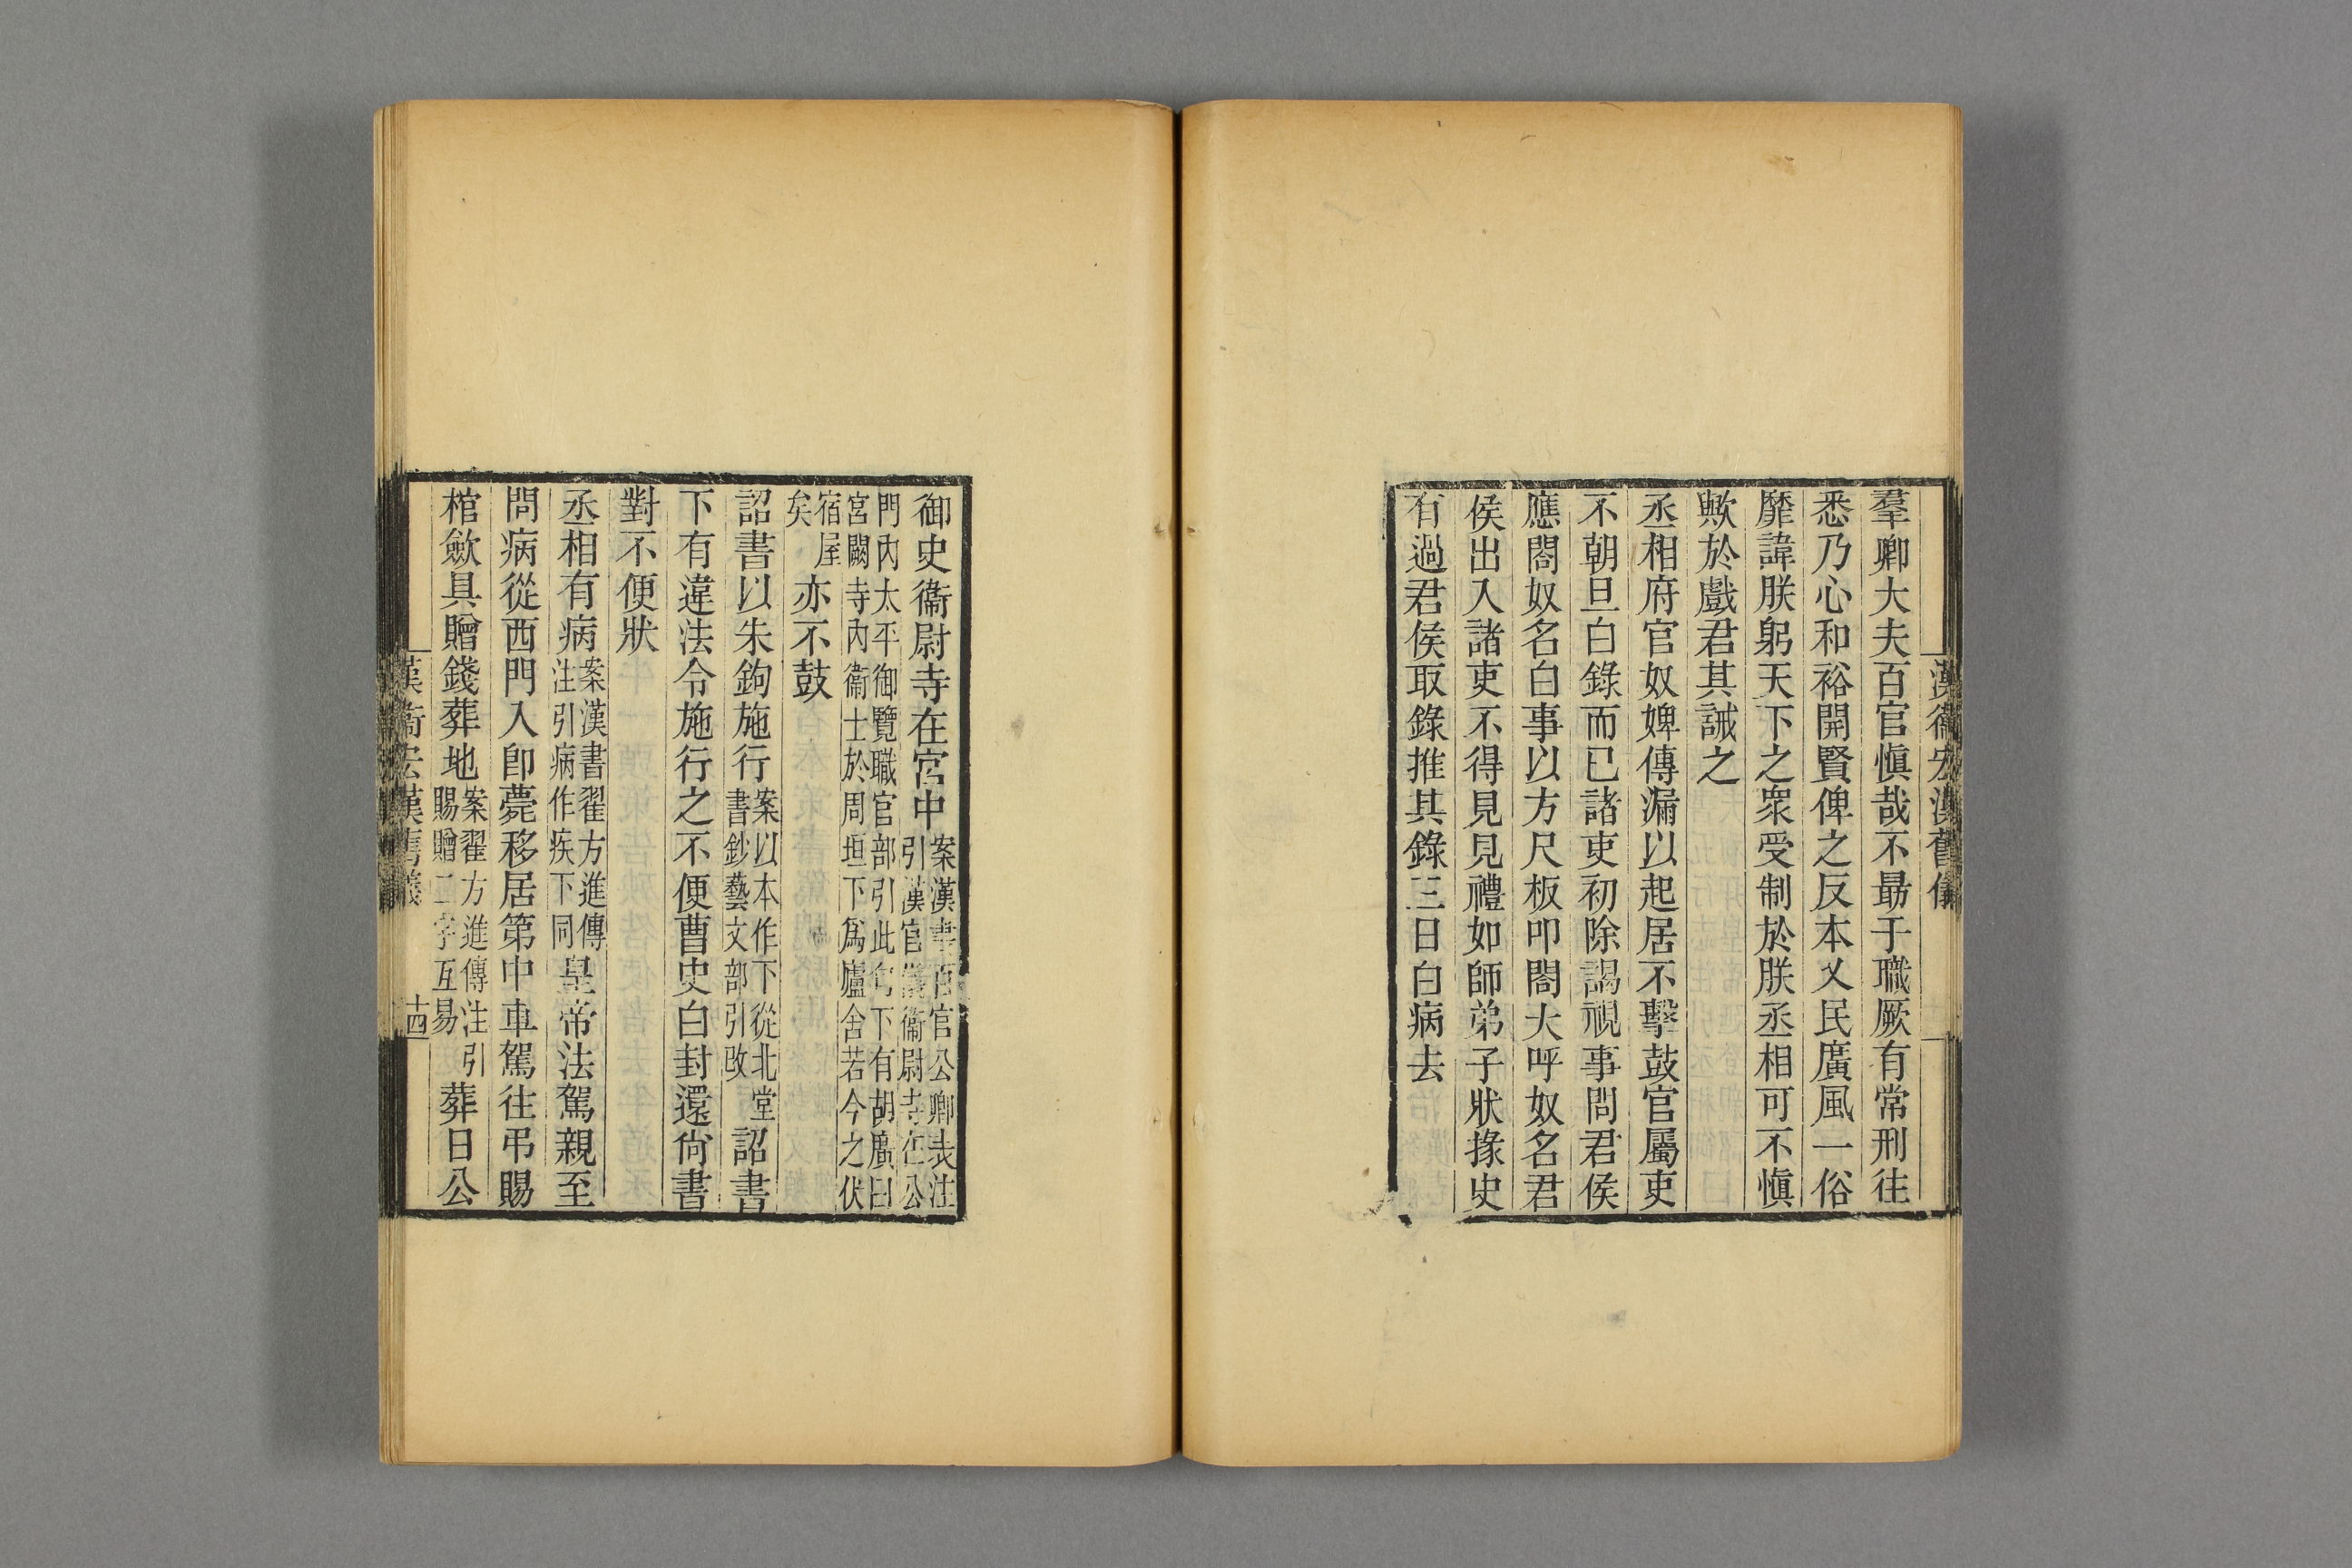 漢衞宏漢舊儀
羣卿大夫百官愼哉不勗于職厥有常刑往
悉乃心和裕開賢俾之反本乂民廣風一俗
靡諱朕躬天下之衆受制於朕丞相可不愼
歟於戲君其誡之
丞相府官奴婢傳漏以起居不擊鼓官屬吏
不朝旦白錄而已諸吏初除謁視事問君侯
應閤奴名白事以方尺板叩閤大呼奴名君
侯出入諸吏不得見見禮如師弟子狀掾史
有過君侯取錄推其錄三日白病去
御史衞尉寺在宮中
案漢書百官公卿表注
引漢官儀衞尉寺在公
門內太平御覽職官部引此句下有胡廣曰
宮闕寺內衞士於周垣下爲廬舍若今之伏
宿屋
矣
亦不鼓
詔書以朱鉤施行
案以本作下從北堂
書鈔藝文部引改
詔書
下有違法令施行之不便曹史白封還尙書
對不便狀
丞相有病
案漢書翟方進傳
注引病作疾下同
皇帝法駕親至
問病從西門入卽薨移居第中車駕往弔賜
棺斂具贈錢葬地
案翟方進傳注引
賜贈二字互易
葬日公
漢衞宏漢舊儀
十四